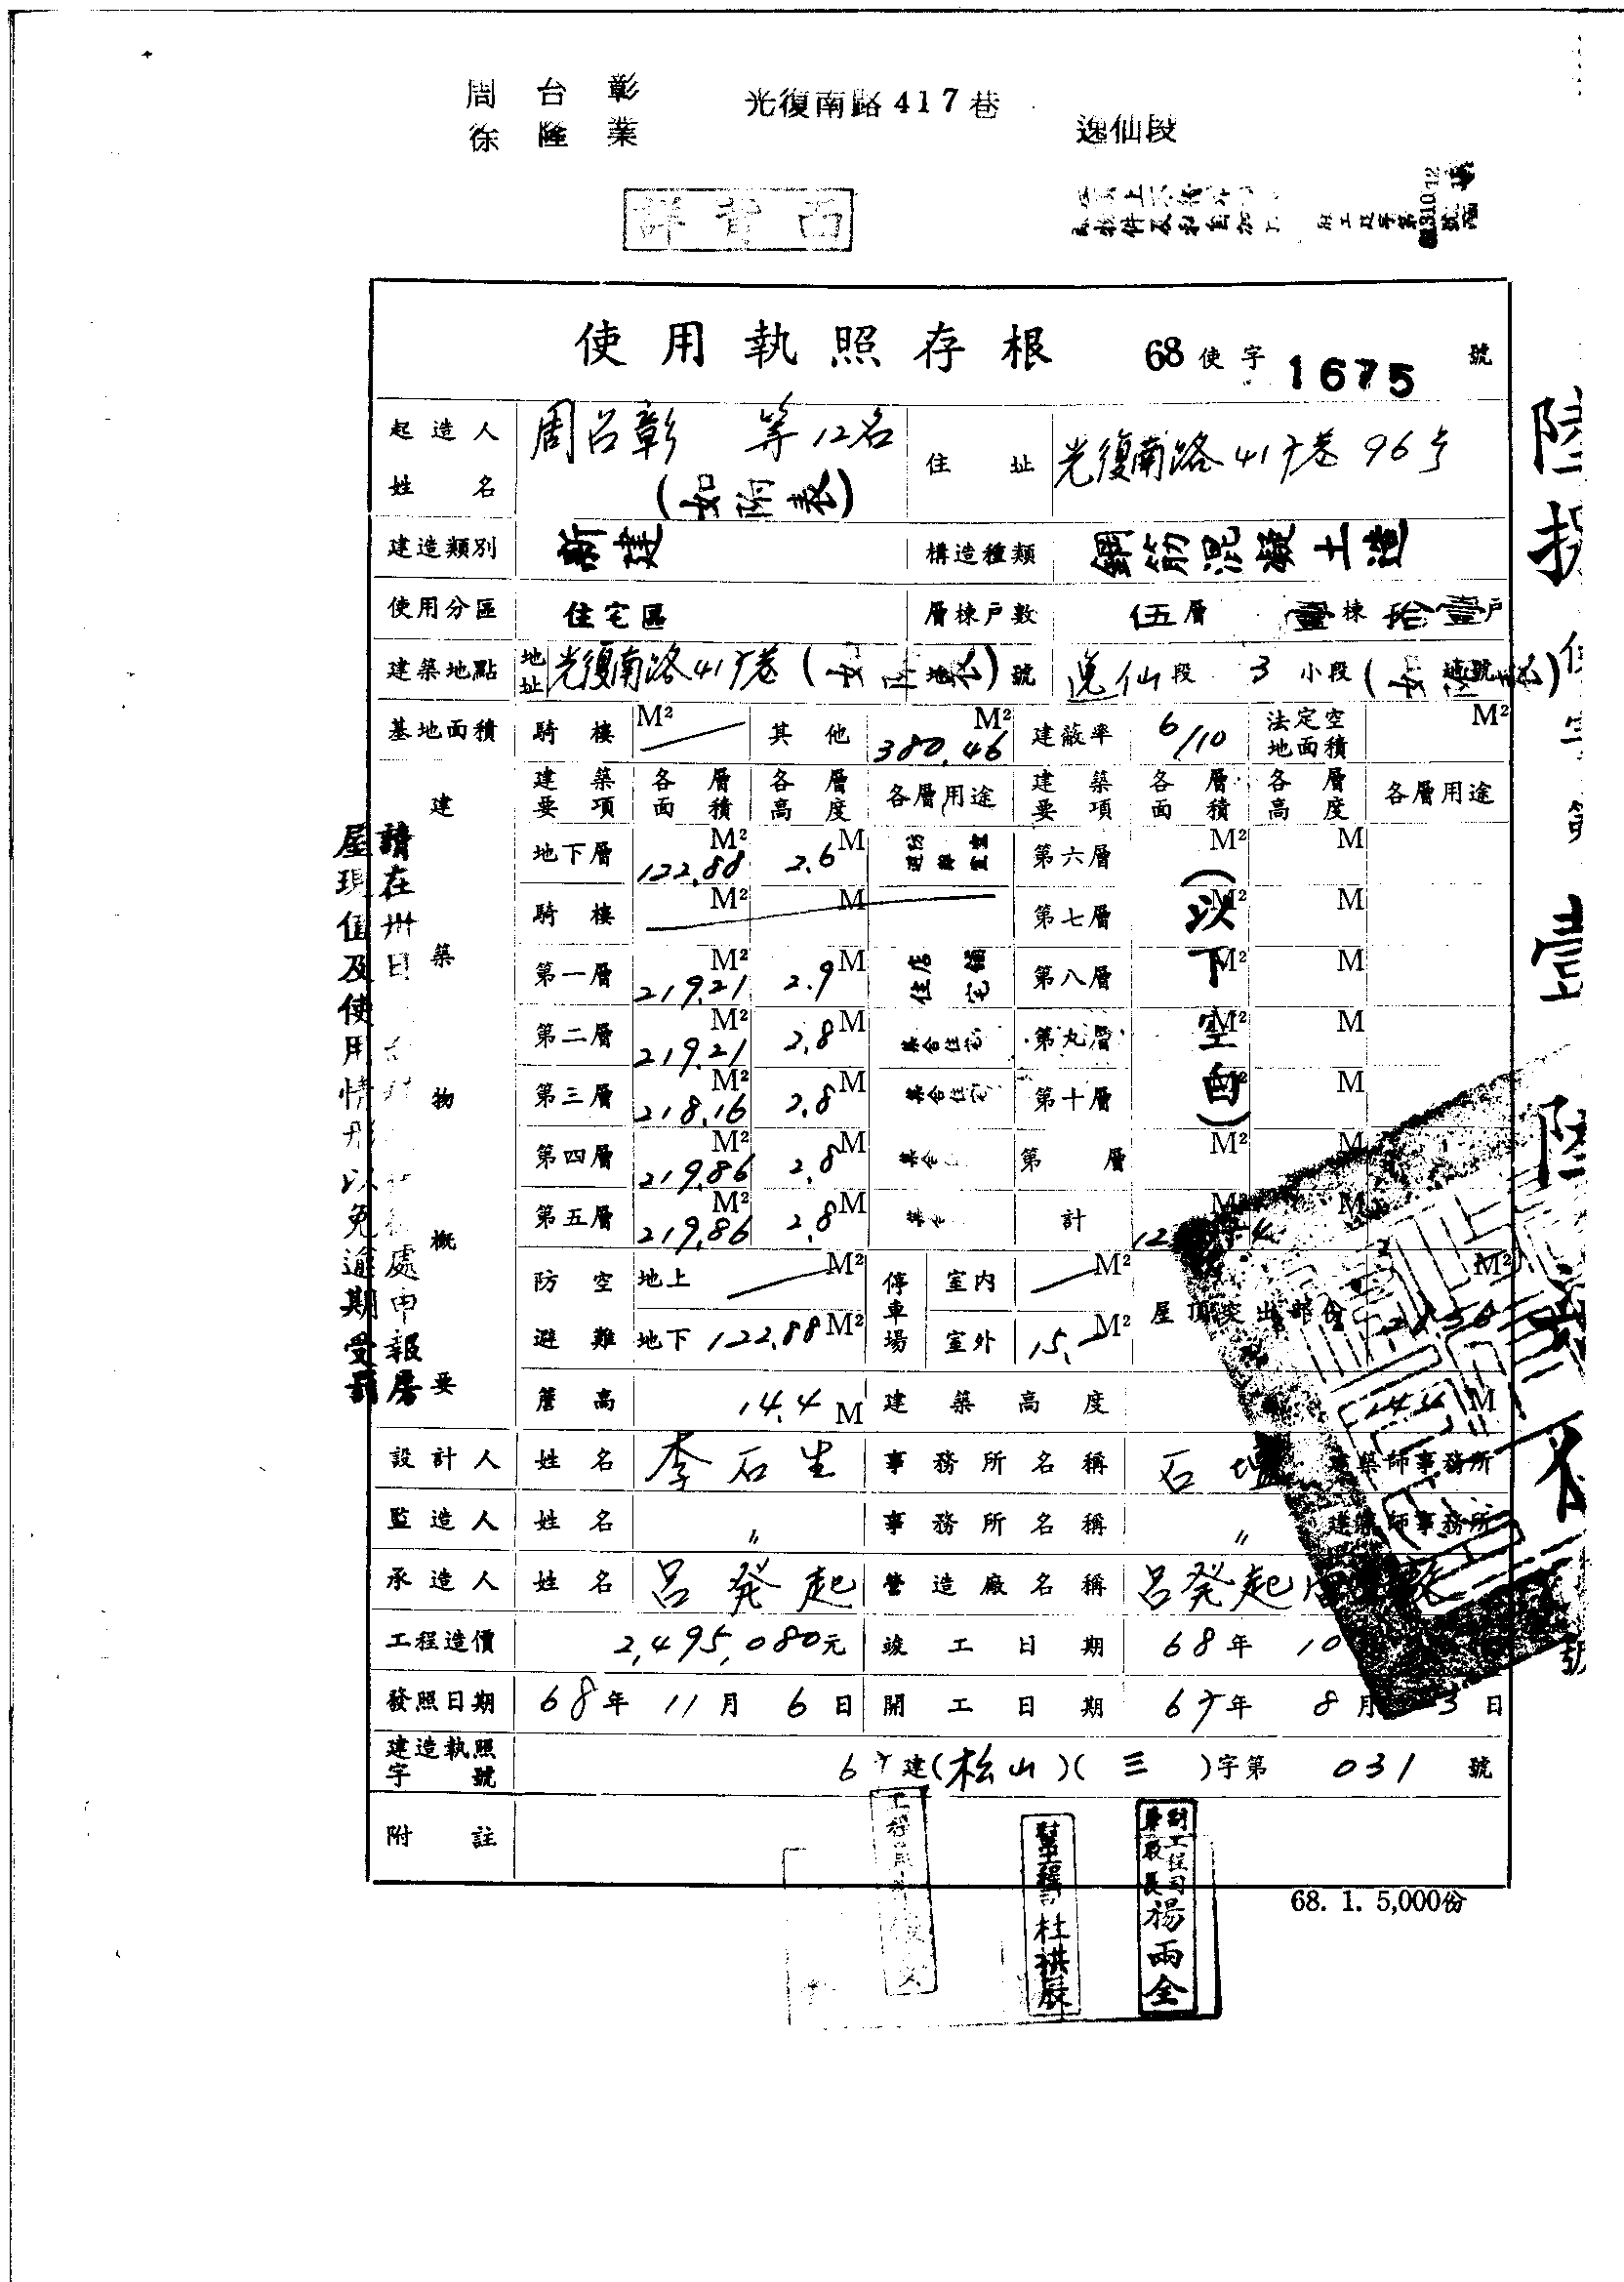 周台彰
徐隆業
光復南路417巷
逸仙段
使用執照存根 68使字1675號
起造人姓名 周呂彰 等12名 (如附表) 住址 光復南路417巷96号
建造類別 新建 構造種類 鋼筋混凝土造
使用分區 住宅區 層棟戶數 伍層 壹棟 拾壹戶
建築地點 地址 光復南路417巷( )號 逸仙段 3 小段( )
基地面積 騎樓 M² 其他 M² 380.46 建蔽率 6/10 法定空地面積 M²
建築要項 各層面積 各層高度 各層用途 建築要項 各層面積 各層高度 各層用途
地下層 M² 122.88 2.6 M 第六層 M² M
騎樓 M² M 第七層 M² M
第一層 M² 219.21 2.9 M 店舖住宅 第八層 M² M
第二層 M² 219.21 2.8 M 集合住宅 第九層 M² M
第三層 M² 218.16 2.8 M 集合住宅 第十層 M² M
第四層 M² 219.86 2.8 M 集合 第 層 M² M
第五層 M² 219.86 2.8 M 計 M² M
(以下空白)
建築物概要
防空避難 地上 M² 停車場 室內 M² 屋頂突出部份 M²
地下 122.88 M² 室外 15.- M²
簷高 14.4 M 建築高度 M
設計人 姓名 李石生 事務所名稱 石 建築師事務所
監造人 姓名 〃 事務所名稱 〃 建築師事務所
承造人 姓名 呂發起 營造廠名稱 呂發起
工程造價 2,495,080元 竣工日期 68年 10
發照日期 68年 11月 6日 開工日期 67年 8月 3日
建造執照字號 67建(松山)(三)字第 031 號
附註
68. 1. 5,000份
請在卅日
處申報房
屋現值及使用情形以免逾期受罰
杜拱辰
副工程司兼股長 楊雨全